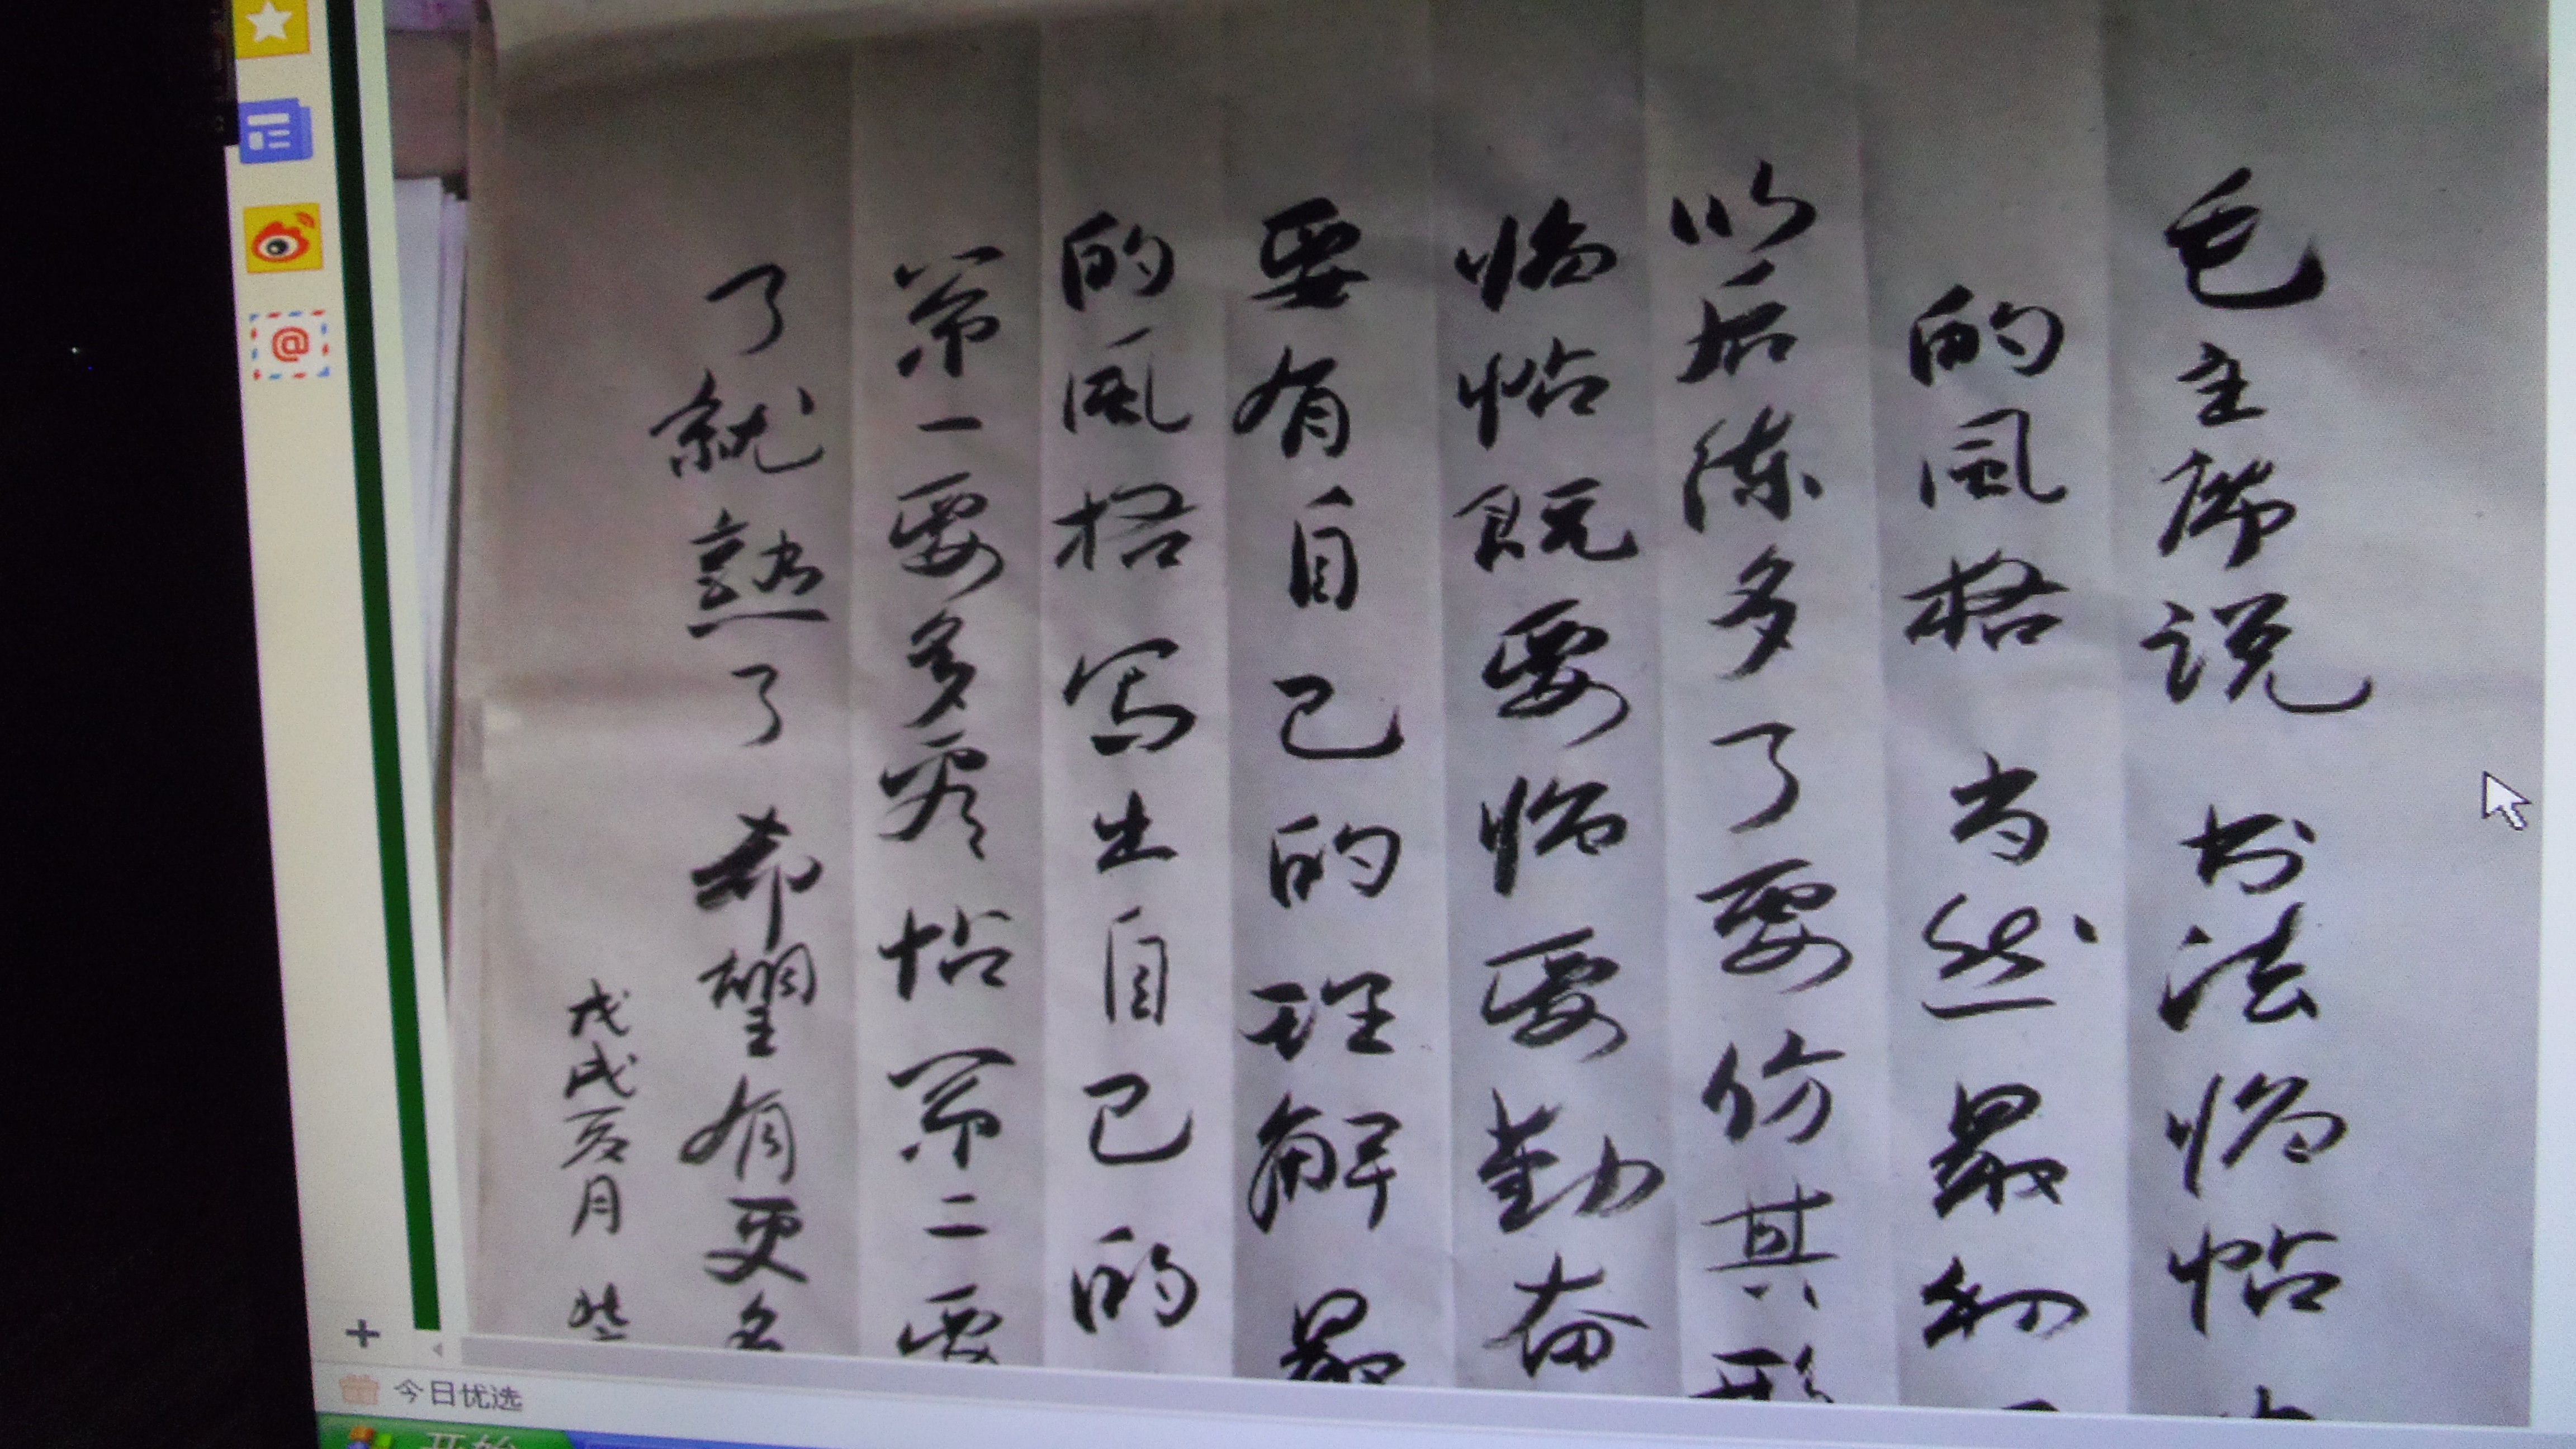 毛主席说 书法临帖
的风格 当然最初
以后练多了要仿其形
临帖既要临要勤奋
要有自己的理解 最
的风格写出自己的
第一要多看帖第二要
了就熟了 希望有更多
戊戌亥月
今日优选
开始
@